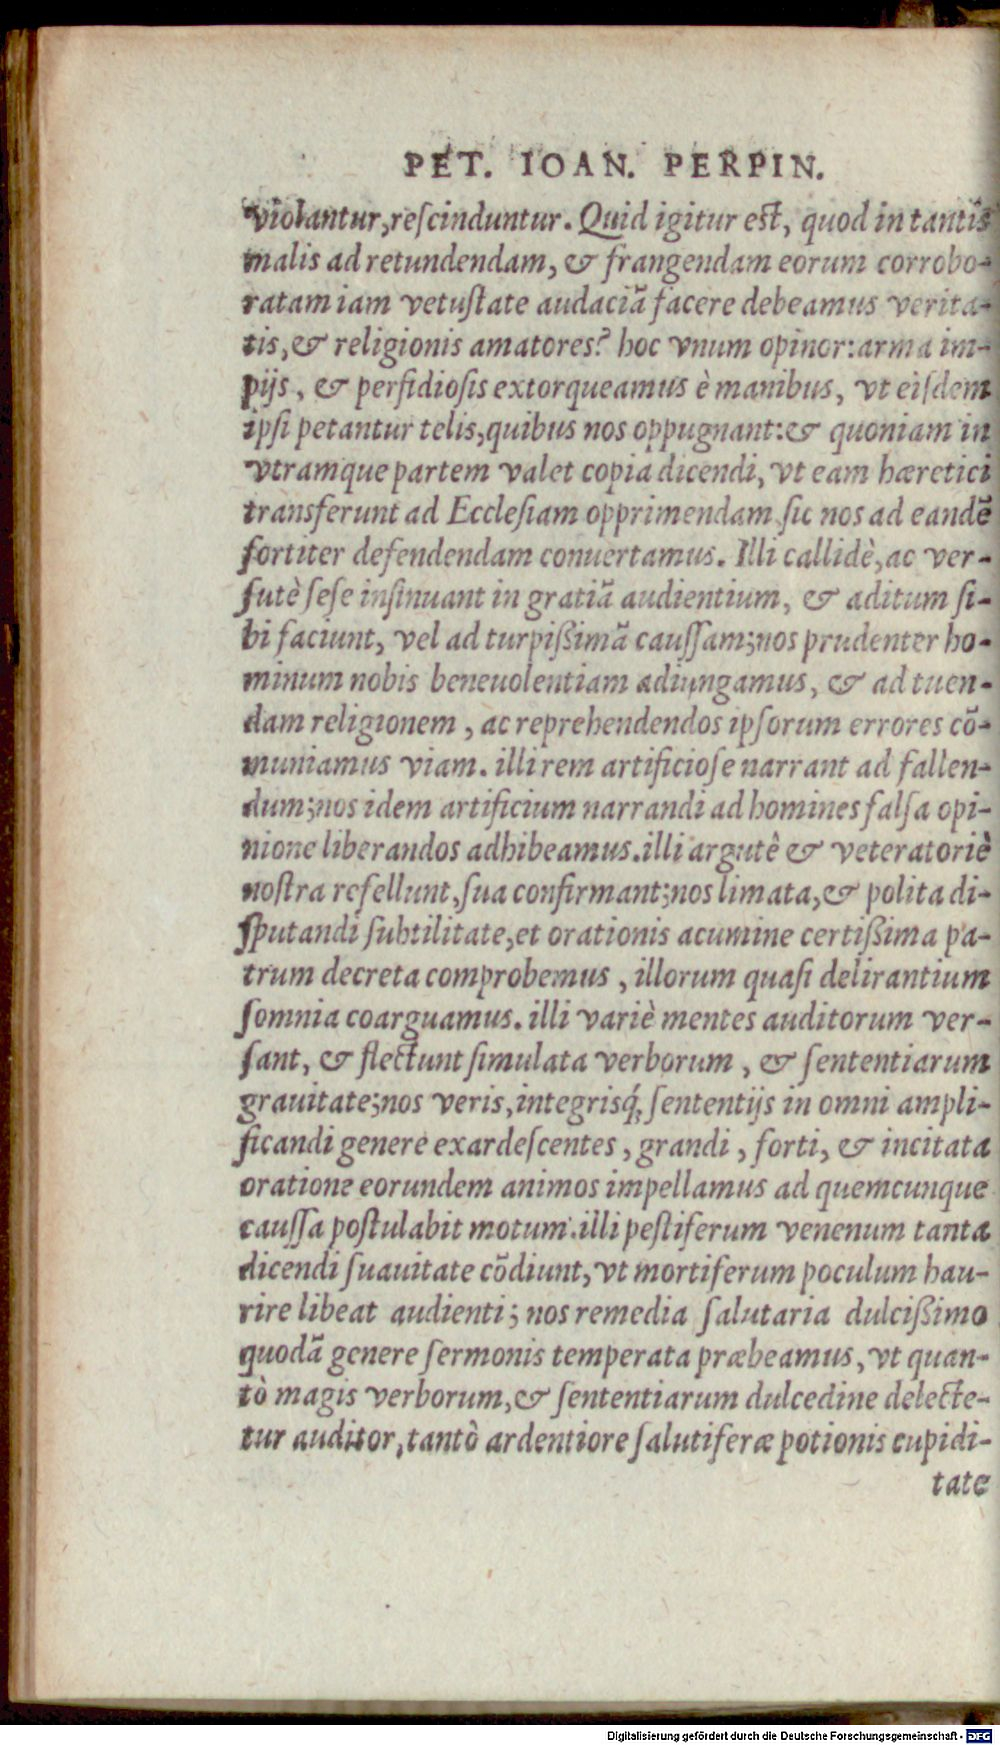 PET. IOAN. PERPIN.
violantur, reſcinduntur. Quid igitur est, quod in tantis
malis ad retundendam, & frangendam eorum corrobo-
ratam iam vetuſtate audaciā facere debeamus verita-
tis, & religionis amatores? hoc vnum opinor: arma im-
pijs, & perfidioſis extorqueamus è manibus, vt eiſdem
ipſi petantur telis, quibus nos oppugnant: & quoniam in
vtramque partem valet copia dicendi, vt eam hæretici
transferunt ad Eccleſiam opprimendam, ſic nos ad eandē
fortiter defendendam conuertamus. Illi callidè, ac ver-
ſutè ſeſe inſinuant in gratiā audientium, & aditum ſi-
bi faciunt, vel ad turpißimā cauſſam; nos prudenter ho-
minum nobis beneuolentiam adiungamus, & ad tuen-
dam religionem, ac reprehendendos ipſorum errores cō-
muniamus viam. illi rem artificioſe narrant ad fallen-
dum; nos idem artificium narrandi ad homines falſa opi-
nione liberandos adhibeamus. illi argutê & veteratoriè
noſtra refellunt, ſua confirmant; nos limata, & polita di-
ſputandi ſubtilitate, et orationis acumine certißima pa-
trum decreta comprobemus, illorum quaſi delirantium
ſomnia coarguamus. illi variè mentes auditorum ver-
ſant, & flectunt ſimulata verborum, & ſententiarum
grauitate; nos veris, integrisq́; ſententijs in omni ampli-
ficandi genere exardeſcentes, grandi, forti, & incitata
oratione eorundem animos impellamus ad quemcunque
cauſſa poſtulabit motum. illi peſtiferum venenum tanta
dicendi ſuauitate cōdiunt, vt mortiferum poculum hau-
rire libeat audienti; nos remedia ſalutaria dulcißimo
quodā genere ſermonis temperata præbeamus, vt quan-
tò magis verborum, & ſententiarum dulcedine delecte-
tur auditor, tantò ardentiore ſalutiferæ potionis cupidi-
tate
Digitalisierung gefördert durch die Deutsche Forschungsgemeinschaft - DFG